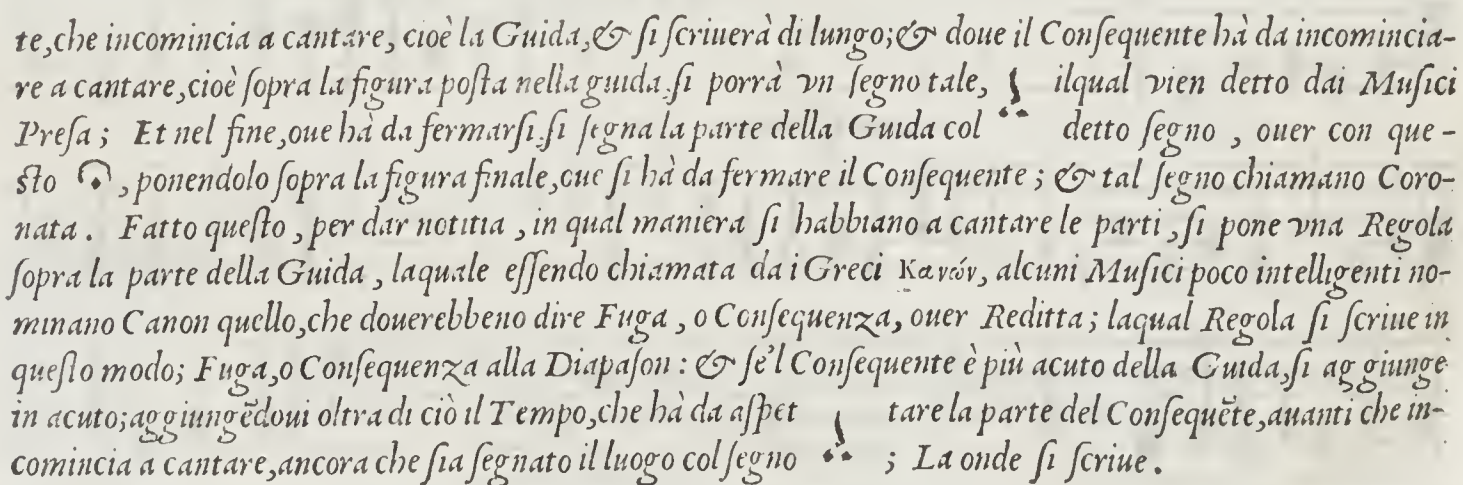 te,che incomincia a cantare, cioè la Guida,& ſi ſcriuerà di lungo;& doue il Conſequente hà da incomincia-
re a cantare,cioè ſopra la figura poſta nella guida.ſi porrà vn ſegno tale, ilqual vien detto dai Muſici
Preſa; Et nel fine,oue hà da fermarſi.ſi ſegna la parte della Guida col detto ſegno , ouer con que-
ſto 𝄐 ,ponendolo ſopra la figura finale,oue ſi hà da fermare il Conſequente ; & tal ſegno chiamano Coro-
nata . Fatto queſto , per dar notitia , in qual maniera ſi habbiano a cantare le parti , ſi pone vna Regola
ſopra la parte della Guida , laquale eſſendo chiamata da i Greci Κανών, alcuni Muſici poco intelligenti no-
minano Canon quello,che douerebbeno dire Fuga , o Conſequenza, ouer Reditta ; laqual Regola ſi ſcriue in
queſto modo; Fuga,o Conſequenza alla Diapaſon : & ſe'l Conſequente è più acuto della Guida,ſi aggiunge
in acuto;aggiungẽdoui oltra di ciò il Tempo,che hà da aſpet tare la parte del Conſequẽte,auanti che in-
comincia a cantare,ancora che ſia ſegnato il luogo col ſegno ; La onde ſi ſcriue .